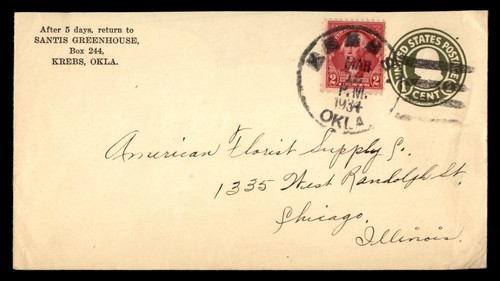 After 5 days, return to
SANTIS GREENHOUSE,
Box 244,
KREBS, OKLA.
KREBS
MAR
P.M.
1934
OKLA.
2 2
UNITED STATES POSTAGE
1 CENT 1
American Florist Supply Co.
1335 West Randolph St.
Chicago,
Illinois.